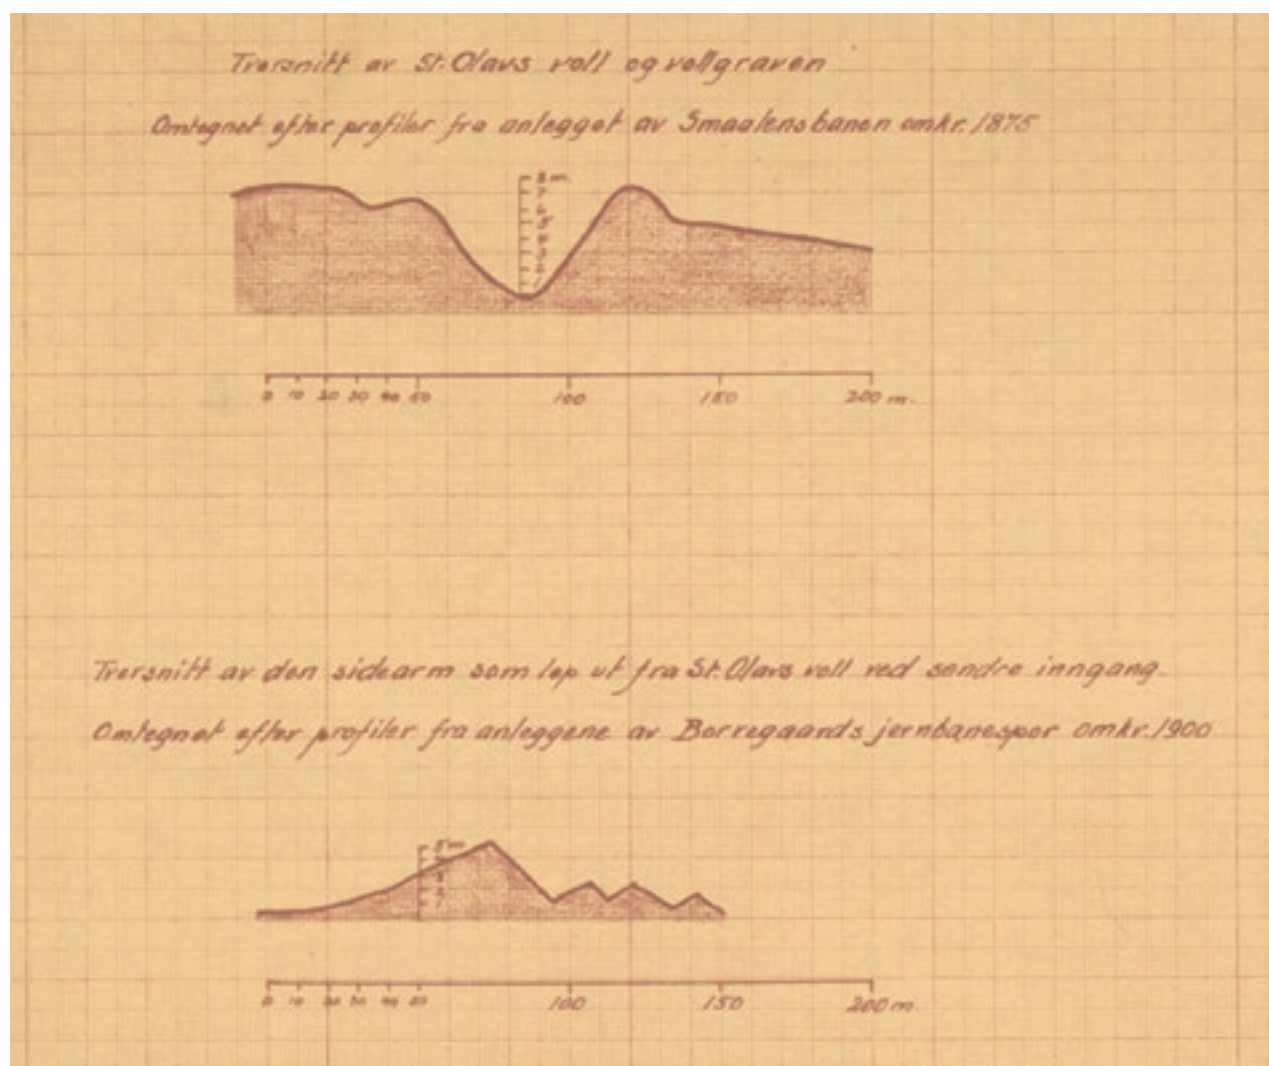 Tversnitt av St. Olavs voll og vollgraven
Omtegnet efter profiler fra anlegget av Smaalensbanen omkr. 1875
8 m.
7
6
5
4
3
2
1
0 10 20 30 40 50 100 150 200 m.
Tversnitt av den sidearm som løp ut fra St. Olavs voll ved søndre inngang.
Omtegnet efter profiler fra anleggene av Borregaards jernbanespor omkr. 1900
5 m
4
3
2
1
0 10 20 30 40 50 100 150 200 m.